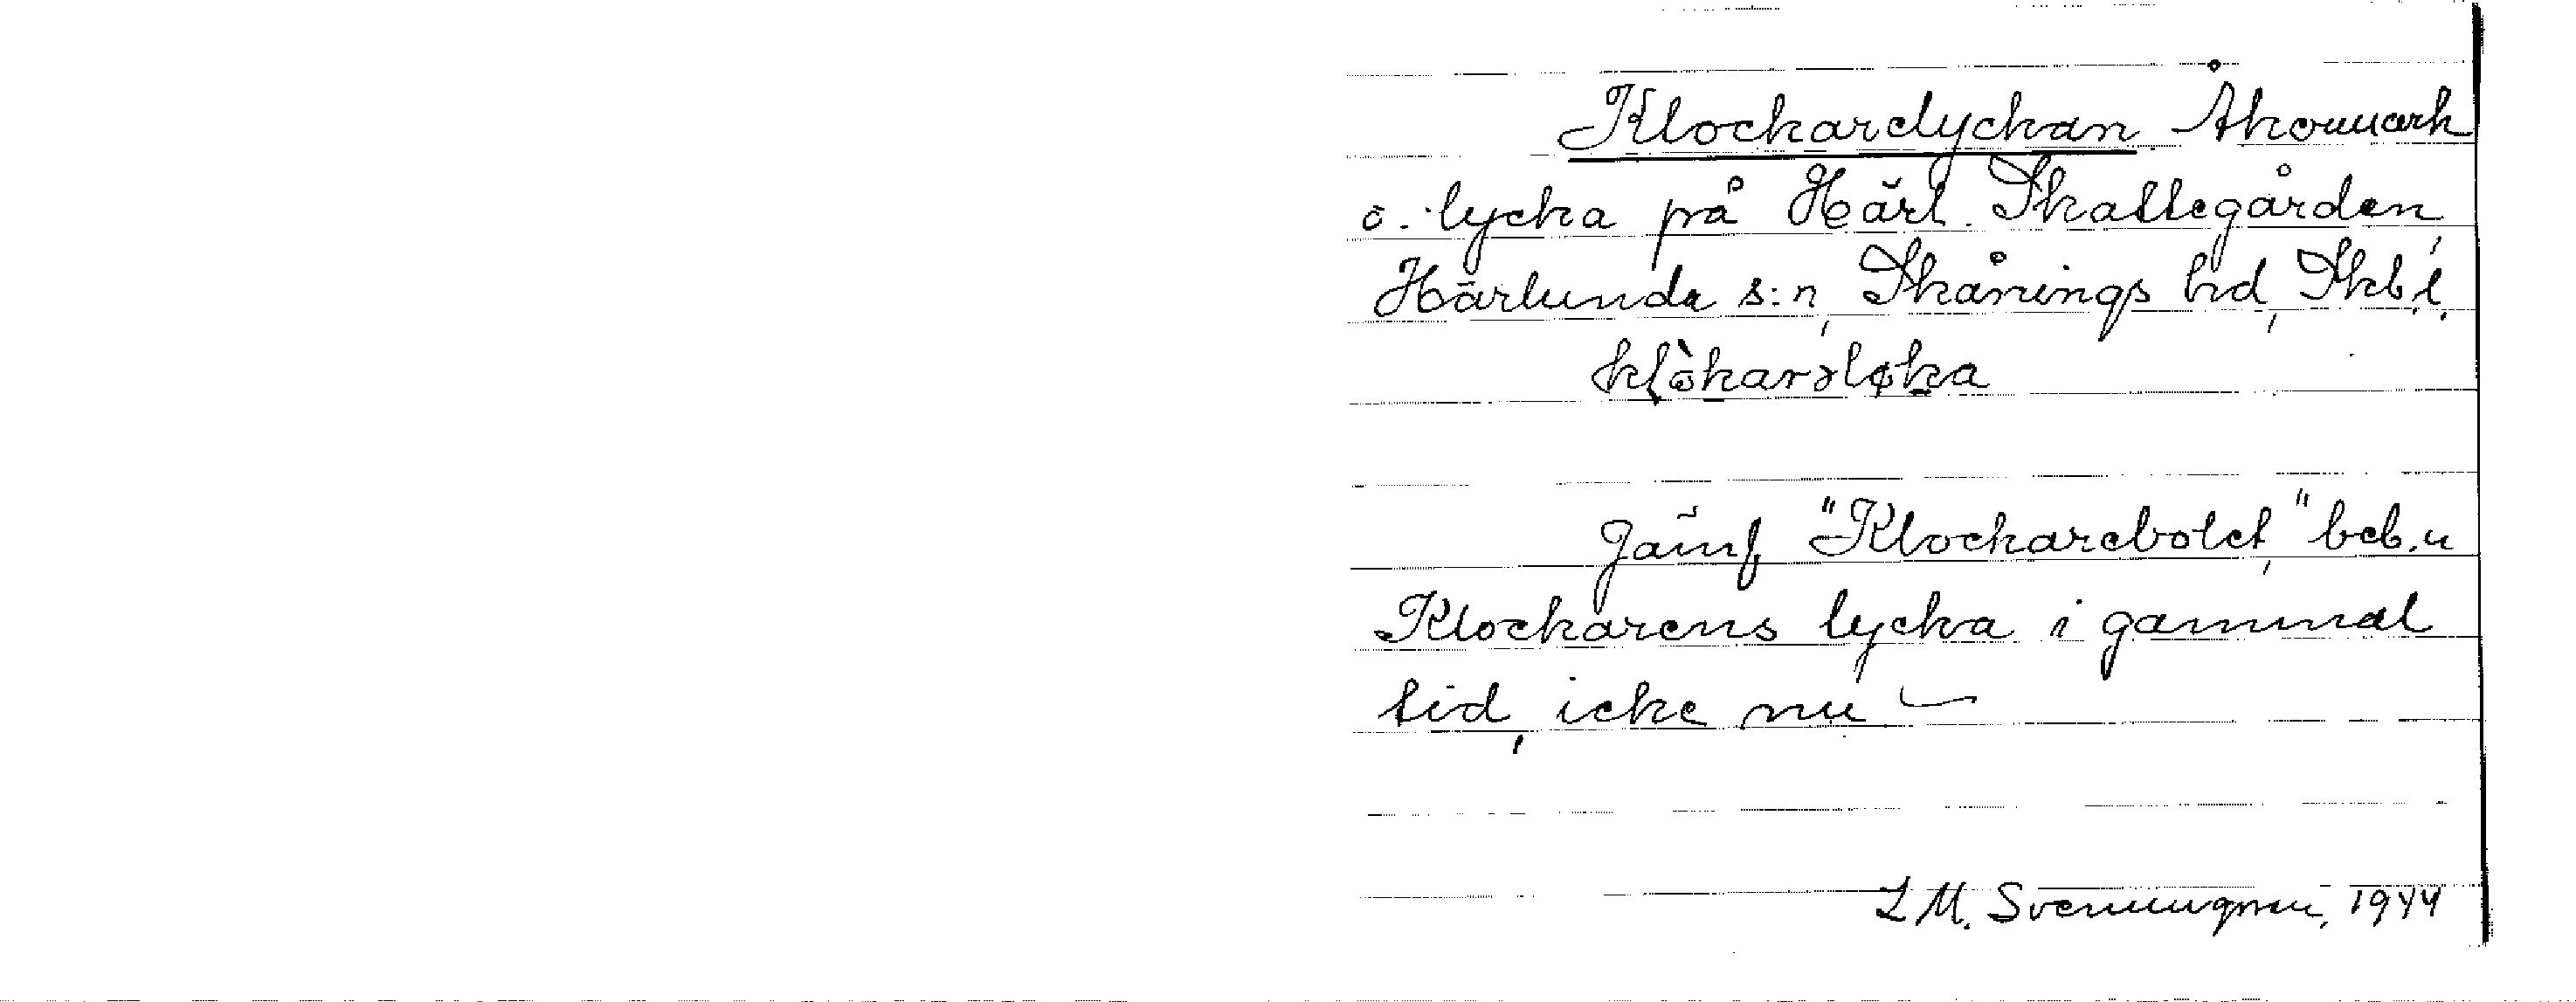 Klockarelyckan Åkermark
o. lycka på Härl. Skattegården,
Härlunda s:n, Skånings hd, Skb. l.
klòkarəløka
Jämf. "Klockarebolet", beb. n
Klockarens lycka i gammal
tid, icke nu
L M. Svenungsson, 1944